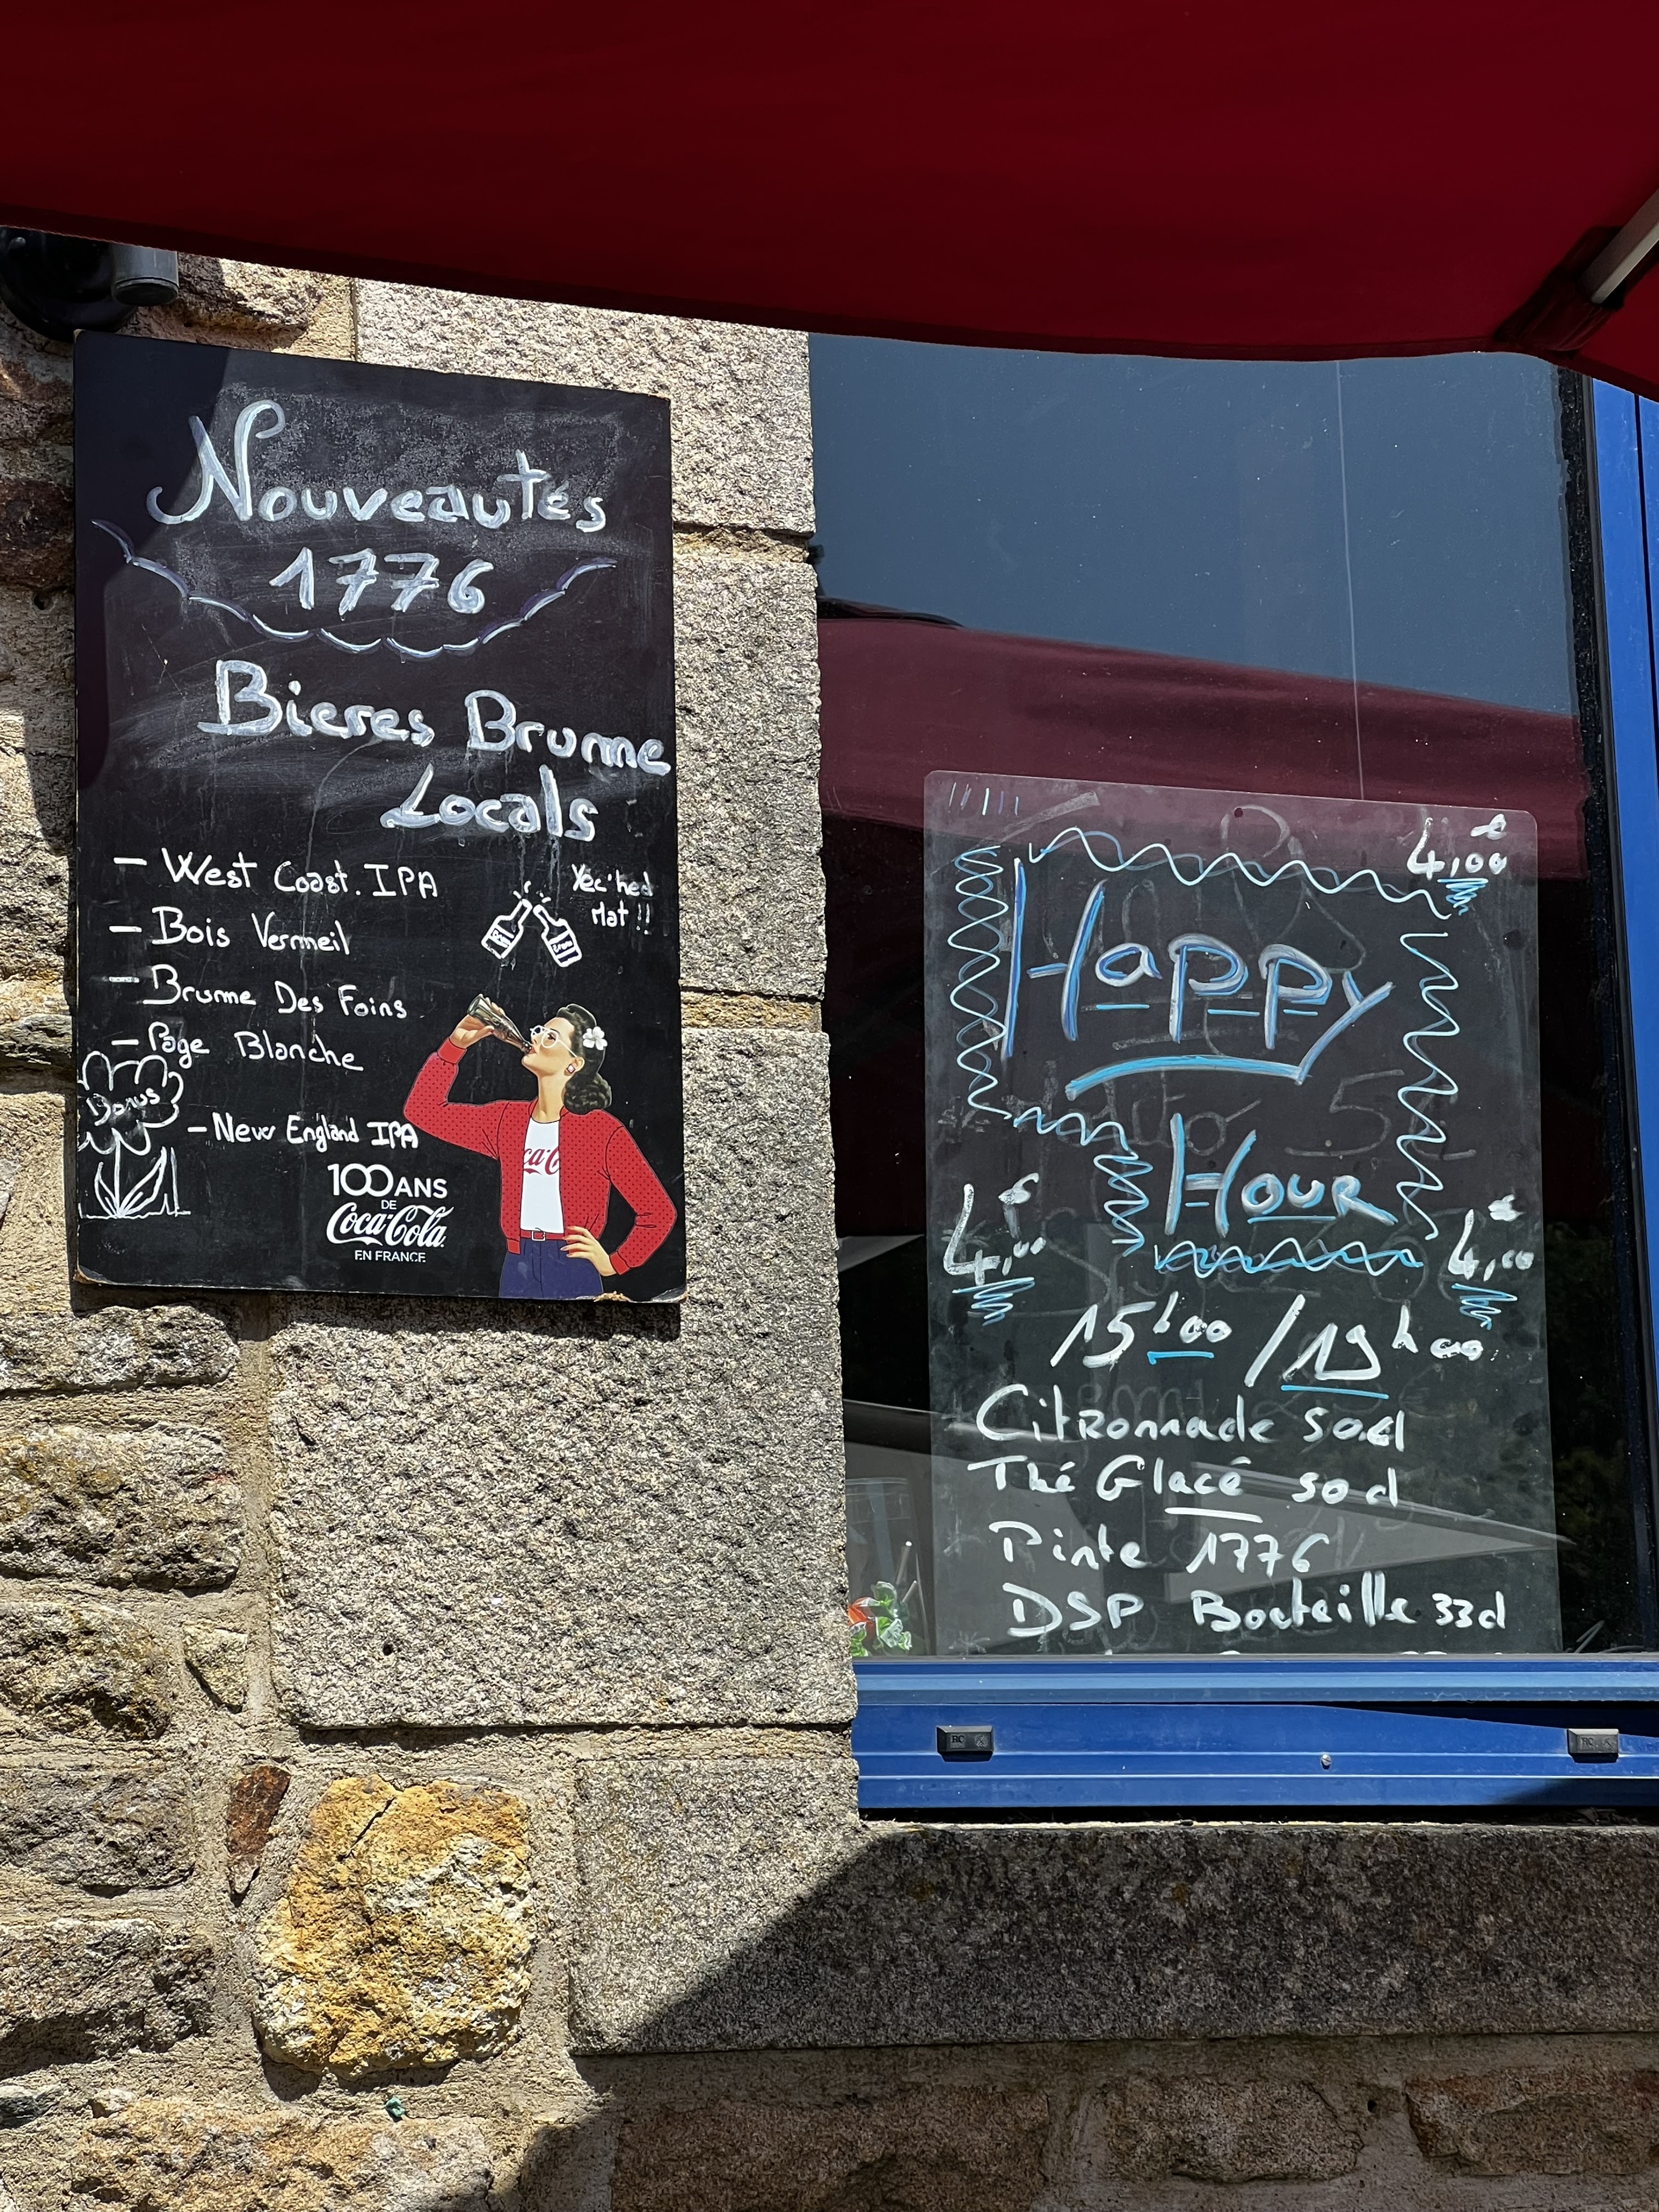 Nouveautés
1776
Bieres Brume
Locals
- West Coast. IPA
- Bois Vermeil
- Brume Des Foins
- Page Blanche
- New England IPA
Yec'hed
Mat !!
100 ANS
DE
Coca-Cola
EN FRANCE
4,00 €
Happy
Hour
4,00 €
4,00 €
15h00 / 19h00
Citronnade 50cl
Thé Glacé 50cl
Pinte 1776
DSP Bouteille 33cl